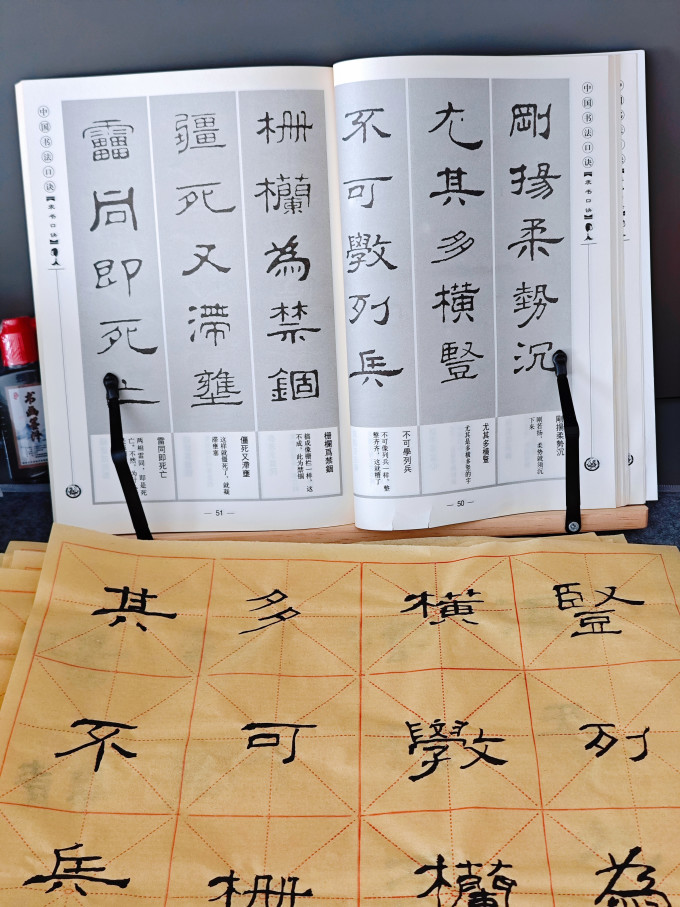 中国书法口诀
【隶书口诀】
剛揚柔勢沉
尤其多橫豎
不可斆列兵
剛揚柔勢沉
刚若扬，柔势就须沉
下来
尤其多橫豎
尤其是多横多竖的字
不可學列兵
不可像列兵一样，整
整齐齐，这就糟了
— 50 —
柵欄為禁錮
疆死又滯壅
靁同即死亡
柵欄爲禁錮
搞成像栅栏一样，这
不成，此为禁锢
僵死又滯壅
这样就僵死了，就凝
滞壅塞
雷同即死亡
两相雷同，即是死
亡，不然，
— 51 —
中国书法口诀
【隶书口诀】
书画
其多橫豎
不可斆列
兵柵欄為